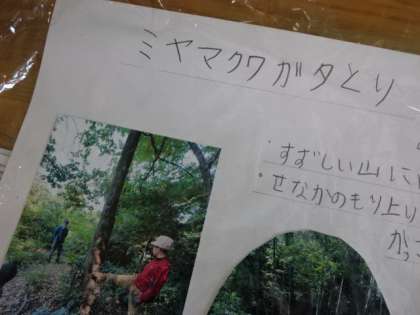 ミヤマクワガタとり
・すずしい山に
・せなかのもり上り
かっ